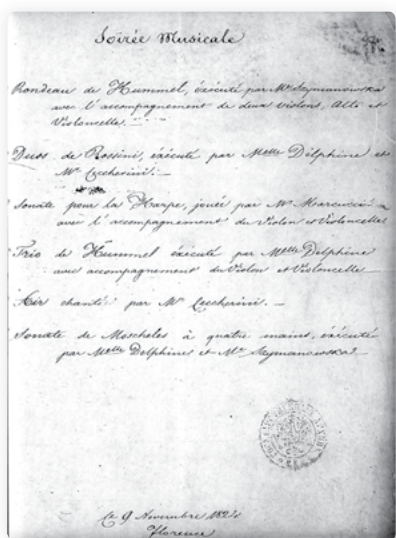 Soirée Musicale
Rondeau de Hummel, éxécuté par Me Szymanowska
avec l'accompagnement de deux violons, Alto et
Violoncelle.
Duos de Rossini, éxécuté par Melle Delphine et
Mr Ceccherini.
Sonate pour la Harpe, jouée par Mr Marcucci
avec l'accompagnement du Violon et Violoncelle
Trio de Hummel éxécuté par Melle Delphine
avec accompagnement du Violon et Violoncelle
Air chanté par Mr Ceccherini. —
Sonate de Moscheles à quatre mains, éxécuté
par Melle Delphine et Me Szymanowska
Ce 9 Novembre
Florence